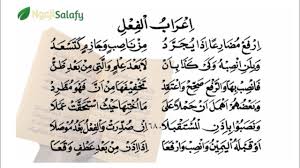 NgajiSalafy
اِعْرَابُ الْفِعْلِ
اِرْفَعْ مُضَارِعًا اِذَا يُجَرَّدُ مِنْ نَاصِبٍ وَجَازِمٍ كَتَسْعَدُ
وَبِلَنِ انْصِبْهُ وَكَيْ كَذَا بِاَنْ لَا بَعْدَ عِلْمٍ وَالَّتِي مِنْ بَعْدِ ظَنْ
فَانْصِبْ بِهَا وَالرَّفْعَ صَحِّحْ وَاعْتَقِدْ تَخْفِيْفَهَا مِنْ اَنَّ فَهْوَ مُطَّرِدْ
وَبَعْضُهُمْ اَهْمَلَ اَنْ حَمْلًا عَلَى مَا اُخْتِهَا حَيْثُ اسْتَحَقَّتْ عَمَلًا
وَنَصَبُوْا بِاِذَنِ الْمُسْتَقْبَلَا ٦٨٠ اِنْ صُدِّرَتْ وَالْفِعْلُ بَعْدُ مُوْصَلَا
اَوْ قَبْلَهُ الْيَمِيْنُ وَانْصِبْ وَارْفَعَا اِذَا اِذَنْ مِنْ بَعْدِ عَطْفٍ وَقَعَا